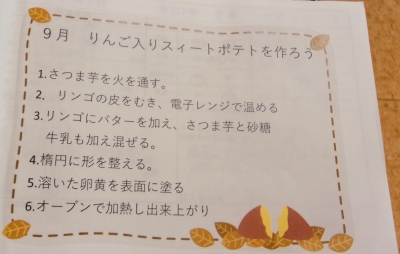 9月　りんご入りスィートポテトを作ろう
1.さつま芋を火を通す。
2.　リンゴの皮をむき、電子レンジで温める
3.リンゴにバターを加え、さつま芋と砂糖
牛乳も加え混ぜる。
4.楕円に形を整える。
5.溶いた卵黄を表面に塗る
6.オーブンで加熱し出来上がり